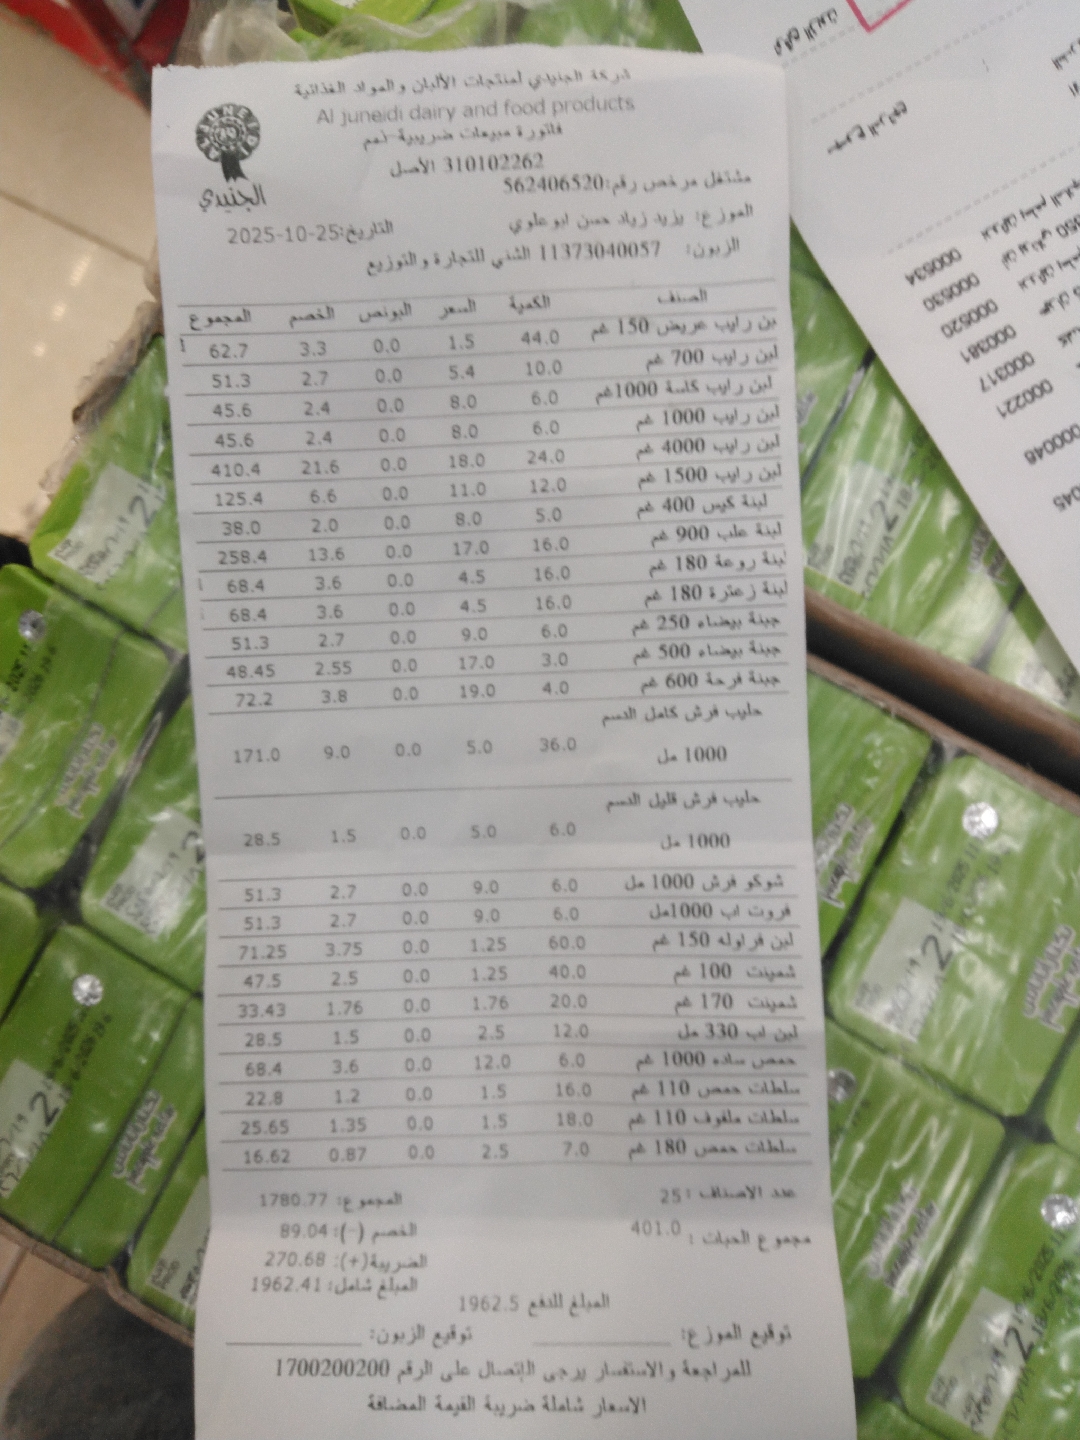 شركة الجنيدي لمنتجات الألبان والمواد الغذائية
Al juneidi dairy and food products
فاتورة مبيعات ضريبية-ذمم
310102262 الأصل
مشتغل مرخص رقم:562406520
الجنيدي
الموزع: يزيد زياد حسن ابو علوي
التاريخ:25-10-2025
الزبون: 11373040057 الشني للتجارة والتوزيع
الصنف الكمية السعر البونص الخصم المجموع
بن رايب عريض 150 غم 44.0 1.5 0.0 3.3 62.7
لبن رايب 700 غم 10.0 5.4 0.0 2.7 51.3
لبن رايب كاسة 1000غم 6.0 8.0 0.0 2.4 45.6
لبن رايب 1000 غم 6.0 8.0 0.0 2.4 45.6
لبن رايب 4000 غم 24.0 18.0 0.0 21.6 410.4
لبن رايب 1500 غم 12.0 11.0 0.0 6.6 125.4
لبنة كيس 400 غم 5.0 8.0 0.0 2.0 38.0
لبنة علب 900 غم 16.0 17.0 0.0 13.6 258.4
لبنة روعة 180 غم 16.0 4.5 0.0 3.6 68.4
لبنة زعترة 180 غم 16.0 4.5 0.0 3.6 68.4
جبنة بيضاء 250 غم 6.0 9.0 0.0 2.7 51.3
جبنة بيضاء 500 غم 3.0 17.0 0.0 2.55 48.45
جبنة فرحة 600 غم 4.0 19.0 0.0 3.8 72.2
حليب فرش كامل الدسم
1000 مل 36.0 5.0 0.0 9.0 171.0
حليب فرش قليل الدسم
1000 مل 6.0 5.0 0.0 1.5 28.5
شوكو فرش 1000 مل 6.0 9.0 0.0 2.7 51.3
فروت اب 1000مل 6.0 9.0 0.0 2.7 51.3
لبن فراوله 150 غم 60.0 1.25 0.0 3.75 71.25
شمينت 100 غم 40.0 1.25 0.0 2.5 47.5
شمينت 170 غم 20.0 1.76 0.0 1.76 33.43
لبن اب 330 مل 12.0 2.5 0.0 1.5 28.5
حمص ساده 1000 غم 6.0 12.0 0.0 3.6 68.4
سلطات حمص 110 غم 16.0 1.5 0.0 1.2 22.8
سلطات ملفوف 110 غم 18.0 1.5 0.0 1.35 25.65
سلطات حمص 180 غم 7.0 2.5 0.0 0.87 16.62
عدد الاصناف :25 المجموع: 1780.77
مجموع الحبات : 401.0 الخصم (-): 89.04
الضريبة(+): 270.68
المبلغ شامل: 1962.41
المبلغ للدفع 1962.5
توقيع الموزع: توقيع الزبون:
للمراجعة والاستفسار يرجى الإتصال على الرقم 1700200200
الاسعار شاملة ضريبة القيمة المضافة
000534
000530
000520
000381
000317
000221
000046